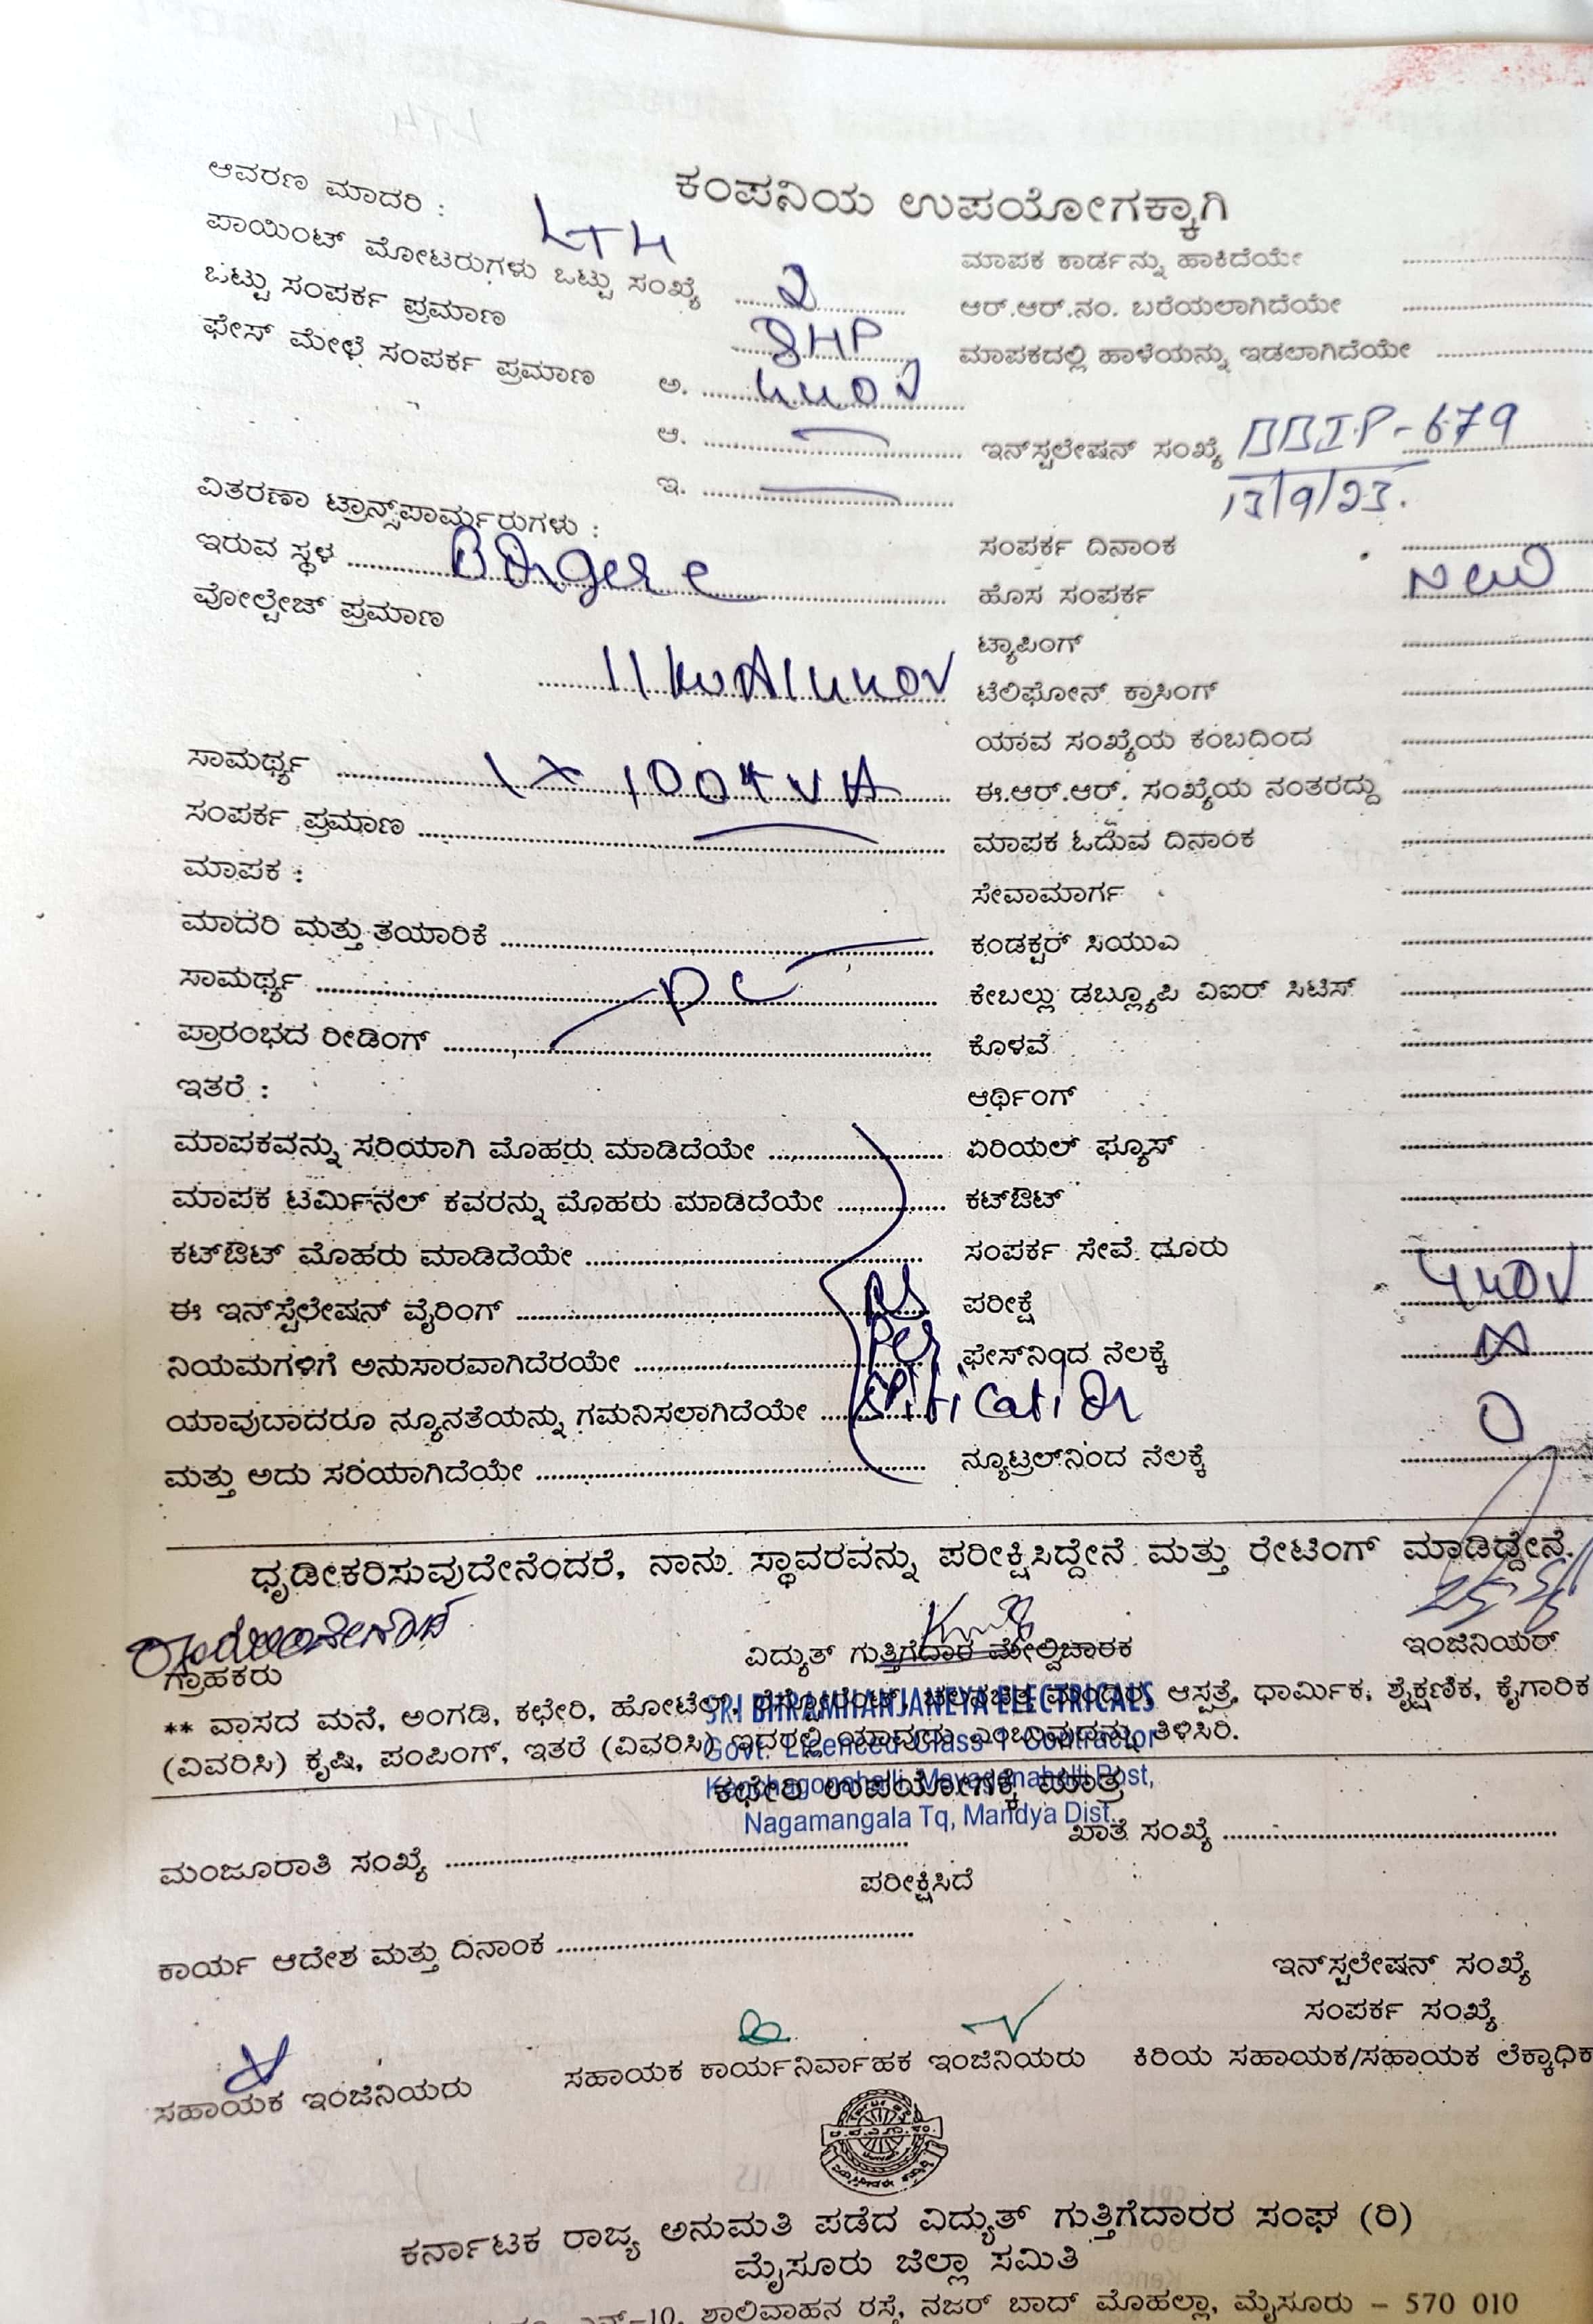 ಕಂಪನಿಯ ಉಪಯೋಗಕ್ಕಾಗಿ
ಆವರಣ ಮಾದರಿ : LT4
ಪಾಯಿಂಟ್ ಮೋಟರುಗಳು ಒಟ್ಟು ಸಂಖ್ಯೆ 2
ಒಟ್ಟು ಸಂಪರ್ಕ ಪ್ರಮಾಣ 8HP
ಫೇಸ್ ಮೇಳೆ ಸಂಪರ್ಕ ಪ್ರಮಾಣ ಅ. 440V
ಆ.
ಇ.
ವಿತರಣಾ ಟ್ರಾನ್ಸ್‌ಪಾರ್ಮರುಗಳು :
ಇರುವ ಸ್ಥಳ
ವೋಲ್ಟೇಜ್ ಪ್ರಮಾಣ
ಸಾಮರ್ಥ್ಯ 1 x 100KVA
ಸಂಪರ್ಕ ಪ್ರಮಾಣ
ಮಾಪಕ :
ಮಾದರಿ ಮತ್ತು ತಯಾರಿಕೆ
ಸಾಮರ್ಥ್ಯ
ಪ್ರಾರಂಭದ ರೀಡಿಂಗ್
ಇತರೆ :
ಮಾಪಕವನ್ನು ಸರಿಯಾಗಿ ಮೊಹರು ಮಾಡಿದೆಯೇ
ಮಾಪಕ ಟರ್ಮಿನಲ್ ಕವರನ್ನು ಮೊಹರು ಮಾಡಿದೆಯೇ
ಕಟ್‌ಔಟ್ ಮೊಹರು ಮಾಡಿದೆಯೇ
ಈ ಇನ್‌ಸ್ಟೆಲೇಷನ್ ವೈರಿಂಗ್ As
ನಿಯಮಗಳಿಗೆ ಅನುಸಾರವಾಗಿದೆರಯೇ Per
ಯಾವುದಾದರೂ ನ್ಯೂನತೆಯನ್ನು ಗಮನಿಸಲಾಗಿದೆಯೇ
ಮತ್ತು ಅದು ಸರಿಯಾಗಿದೆಯೇ
ಮಾಪಕ ಕಾರ್ಡನ್ನು ಹಾಕಿದೆಯೇ
ಆರ್.ಆರ್.ನಂ. ಬರೆಯಲಾಗಿದೆಯೇ
ಮಾಪಕದಲ್ಲಿ ಹಾಳೆಯನ್ನು ಇಡಲಾಗಿದೆಯೇ
ಇನ್‌ಸ್ಟಲೇಷನ್ ಸಂಖ್ಯೆ BBIP-679
13/9/23.
ಸಂಪರ್ಕ ದಿನಾಂಕ
ಹೊಸ ಸಂಪರ್ಕ New
ಟ್ಯಾಪಿಂಗ್
ಟೆಲಿಫೋನ್ ಕ್ರಾಸಿಂಗ್
ಯಾವ ಸಂಖ್ಯೆಯ ಕಂಬದಿಂದ
ಈ.ಆರ್.ಆರ್. ಸಂಖ್ಯೆಯ ನಂತರದ್ದು
ಮಾಪಕ ಓದುವ ದಿನಾಂಕ
ಸೇವಾಮಾರ್ಗ
ಕಂಡಕ್ಟರ್ ಸಿಯುಎ
ಕೇಬಲ್ಲು ಡಬ್ಲ್ಯೂಪಿ ವಿಐರ್ ಸಿಟಿಸ್
ಕೊಳವೆ
ಆರ್ಥಿಂಗ್
ಏರಿಯಲ್ ಫ್ಯೂಸ್
ಕಟ್‌ಔಟ್
ಸಂಪರ್ಕ ಸೇವೆ ದೂರು
ಪರೀಕ್ಷೆ 440V
ಫೇಸ್‌ನಿಂದ ನೆಲಕ್ಕೆ
ನ್ಯೂಟ್ರಲ್‌ನಿಂದ ನೆಲಕ್ಕೆ 0
ಧೃಡೀಕರಿಸುವುದೇನೆಂದರೆ, ನಾನು ಸ್ಥಾವರವನ್ನು ಪರೀಕ್ಷಿಸಿದ್ದೇನೆ ಮತ್ತು ರೇಟಿಂಗ್ ಮಾಡಿದ್ದೇನೆ.
ಗ್ರಾಹಕರು ವಿದ್ಯುತ್ ಗುತ್ತಿಗೆದಾರ ಮೇಲ್ವಿಚಾರಕ ಇಂಜಿನಿಯರ್
** ವಾಸದ ಮನೆ, ಅಂಗಡಿ, ಕಛೇರಿ, ಹೋಟೆಲ್, ಆಸ್ಪತ್ರೆ, ಧಾರ್ಮಿಕ, ಶೈಕ್ಷಣಿಕ, ಕೈಗಾರಿಕ
(ವಿವರಿಸಿ) ಕೃಷಿ, ಪಂಪಿಂಗ್, ಇತರೆ (ವಿವರಿಸಿ) ಇದರಲ್ಲಿ ಯಾವುದು ಎಂಬುವುದನ್ನು ತಿಳಿಸಿರಿ.
SRI BHRAMHANJANEYA ELECTRICALS
Govt. Licenced Class-1 Contractor
Post,
Nagamangala Tq, Mandya Dist.
ಕಛೇರಿ ಉಪಯೋಗಕ್ಕೆ ಮಾತ್ರ
ಮಂಜೂರಾತಿ ಸಂಖ್ಯೆ ಖಾತೆ ಸಂಖ್ಯೆ
ಪರೀಕ್ಷಿಸಿದೆ
ಕಾರ್ಯ ಆದೇಶ ಮತ್ತು ದಿನಾಂಕ
ಇನ್‌ಸ್ಟಲೇಷನ್ ಸಂಖ್ಯೆ
ಸಂಪರ್ಕ ಸಂಖ್ಯೆ
ಸಹಾಯಕ ಇಂಜಿನಿಯರು ಸಹಾಯಕ ಕಾರ್ಯನಿರ್ವಾಹಕ ಇಂಜಿನಿಯರು ಕಿರಿಯ ಸಹಾಯಕ/ಸಹಾಯಕ ಲೆಕ್ಕಾಧಿಕ
ಕರ್ನಾಟಕ ರಾಜ್ಯ ಅನುಮತಿ ಪಡೆದ ವಿದ್ಯುತ್ ಗುತ್ತಿಗೆದಾರರ ಸಂಘ (ರಿ)
ಮೈಸೂರು ಜಿಲ್ಲಾ ಸಮಿತಿ
ಶಾಲಿವಾಹನ ರಸ್ತೆ, ನಜರ್ ಬಾದ್ ಮೊಹಲ್ಲಾ, ಮೈಸೂರು – 570 010